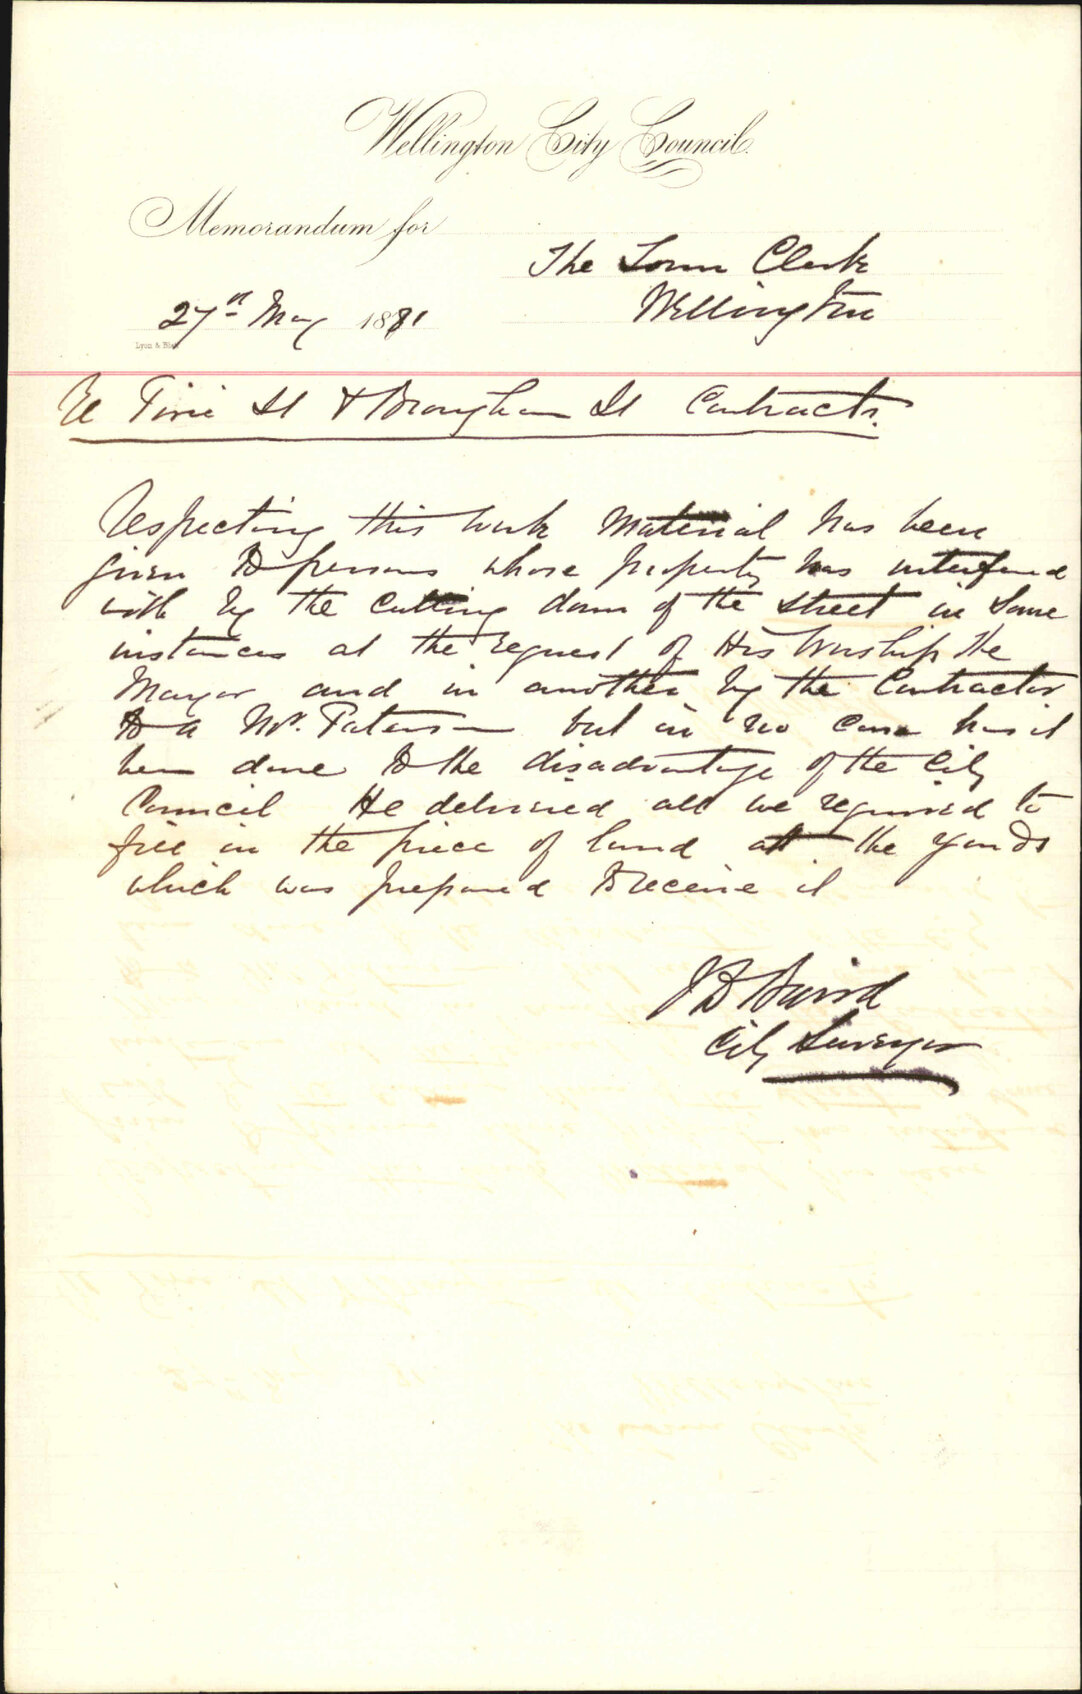 Wellington City Council.
Memorandum for
The Town Clerk
Wellington
27th May 1881
Lyon & Blair
Re Pirie St & Brougham St Contracts.
Respecting this work material has been
given to persons whose property was interfered
with by the cutting down of the street in some
instances at the request of His Worship the
Mayor and in another by the Contractor
to a Mr. Paterson but in no case has it
been done to the disadvantage of the City
Council He delivered all we required to
fill in the piece of land at the yards
which was prepared to receive it
J D Baird
City Surveyor